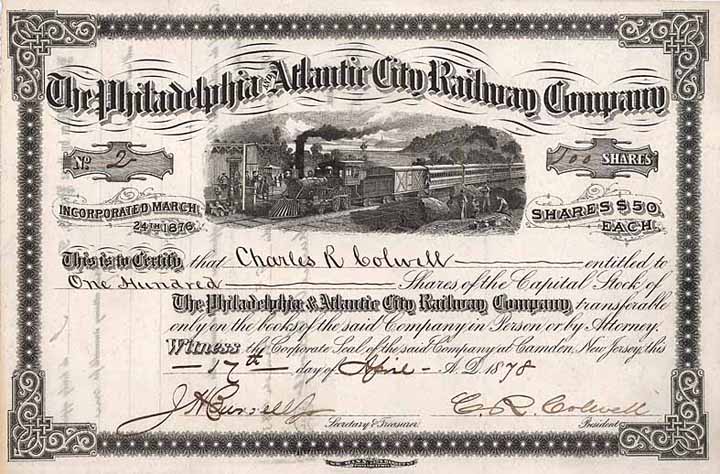 The Philadelphia and Atlantic City Railway Company
No 2 100 SHARES
INCORPORATED MARCH 24TH 1876 SHARES $50. EACH.
This is to Certify that Charles R Colwell entitled to
One Hundred Shares of the Capital Stock of
The Philadelphia and Atlantic City Railway Company, transferable
only on the books of the said Company in Person or by Attorney.
Witness the Corporate Seal of the said Company at Camden, New Jersey, this
17th day of April A.D. 1878
C. R. Colwell
Secretary & Treasurer President